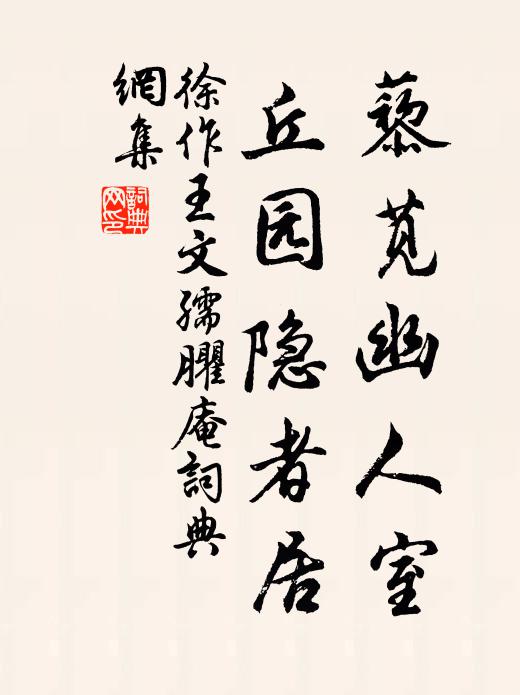 藜苋幽人室
丘园隐者居
徐作王文孺臞庵詞典
網集
詞典网印